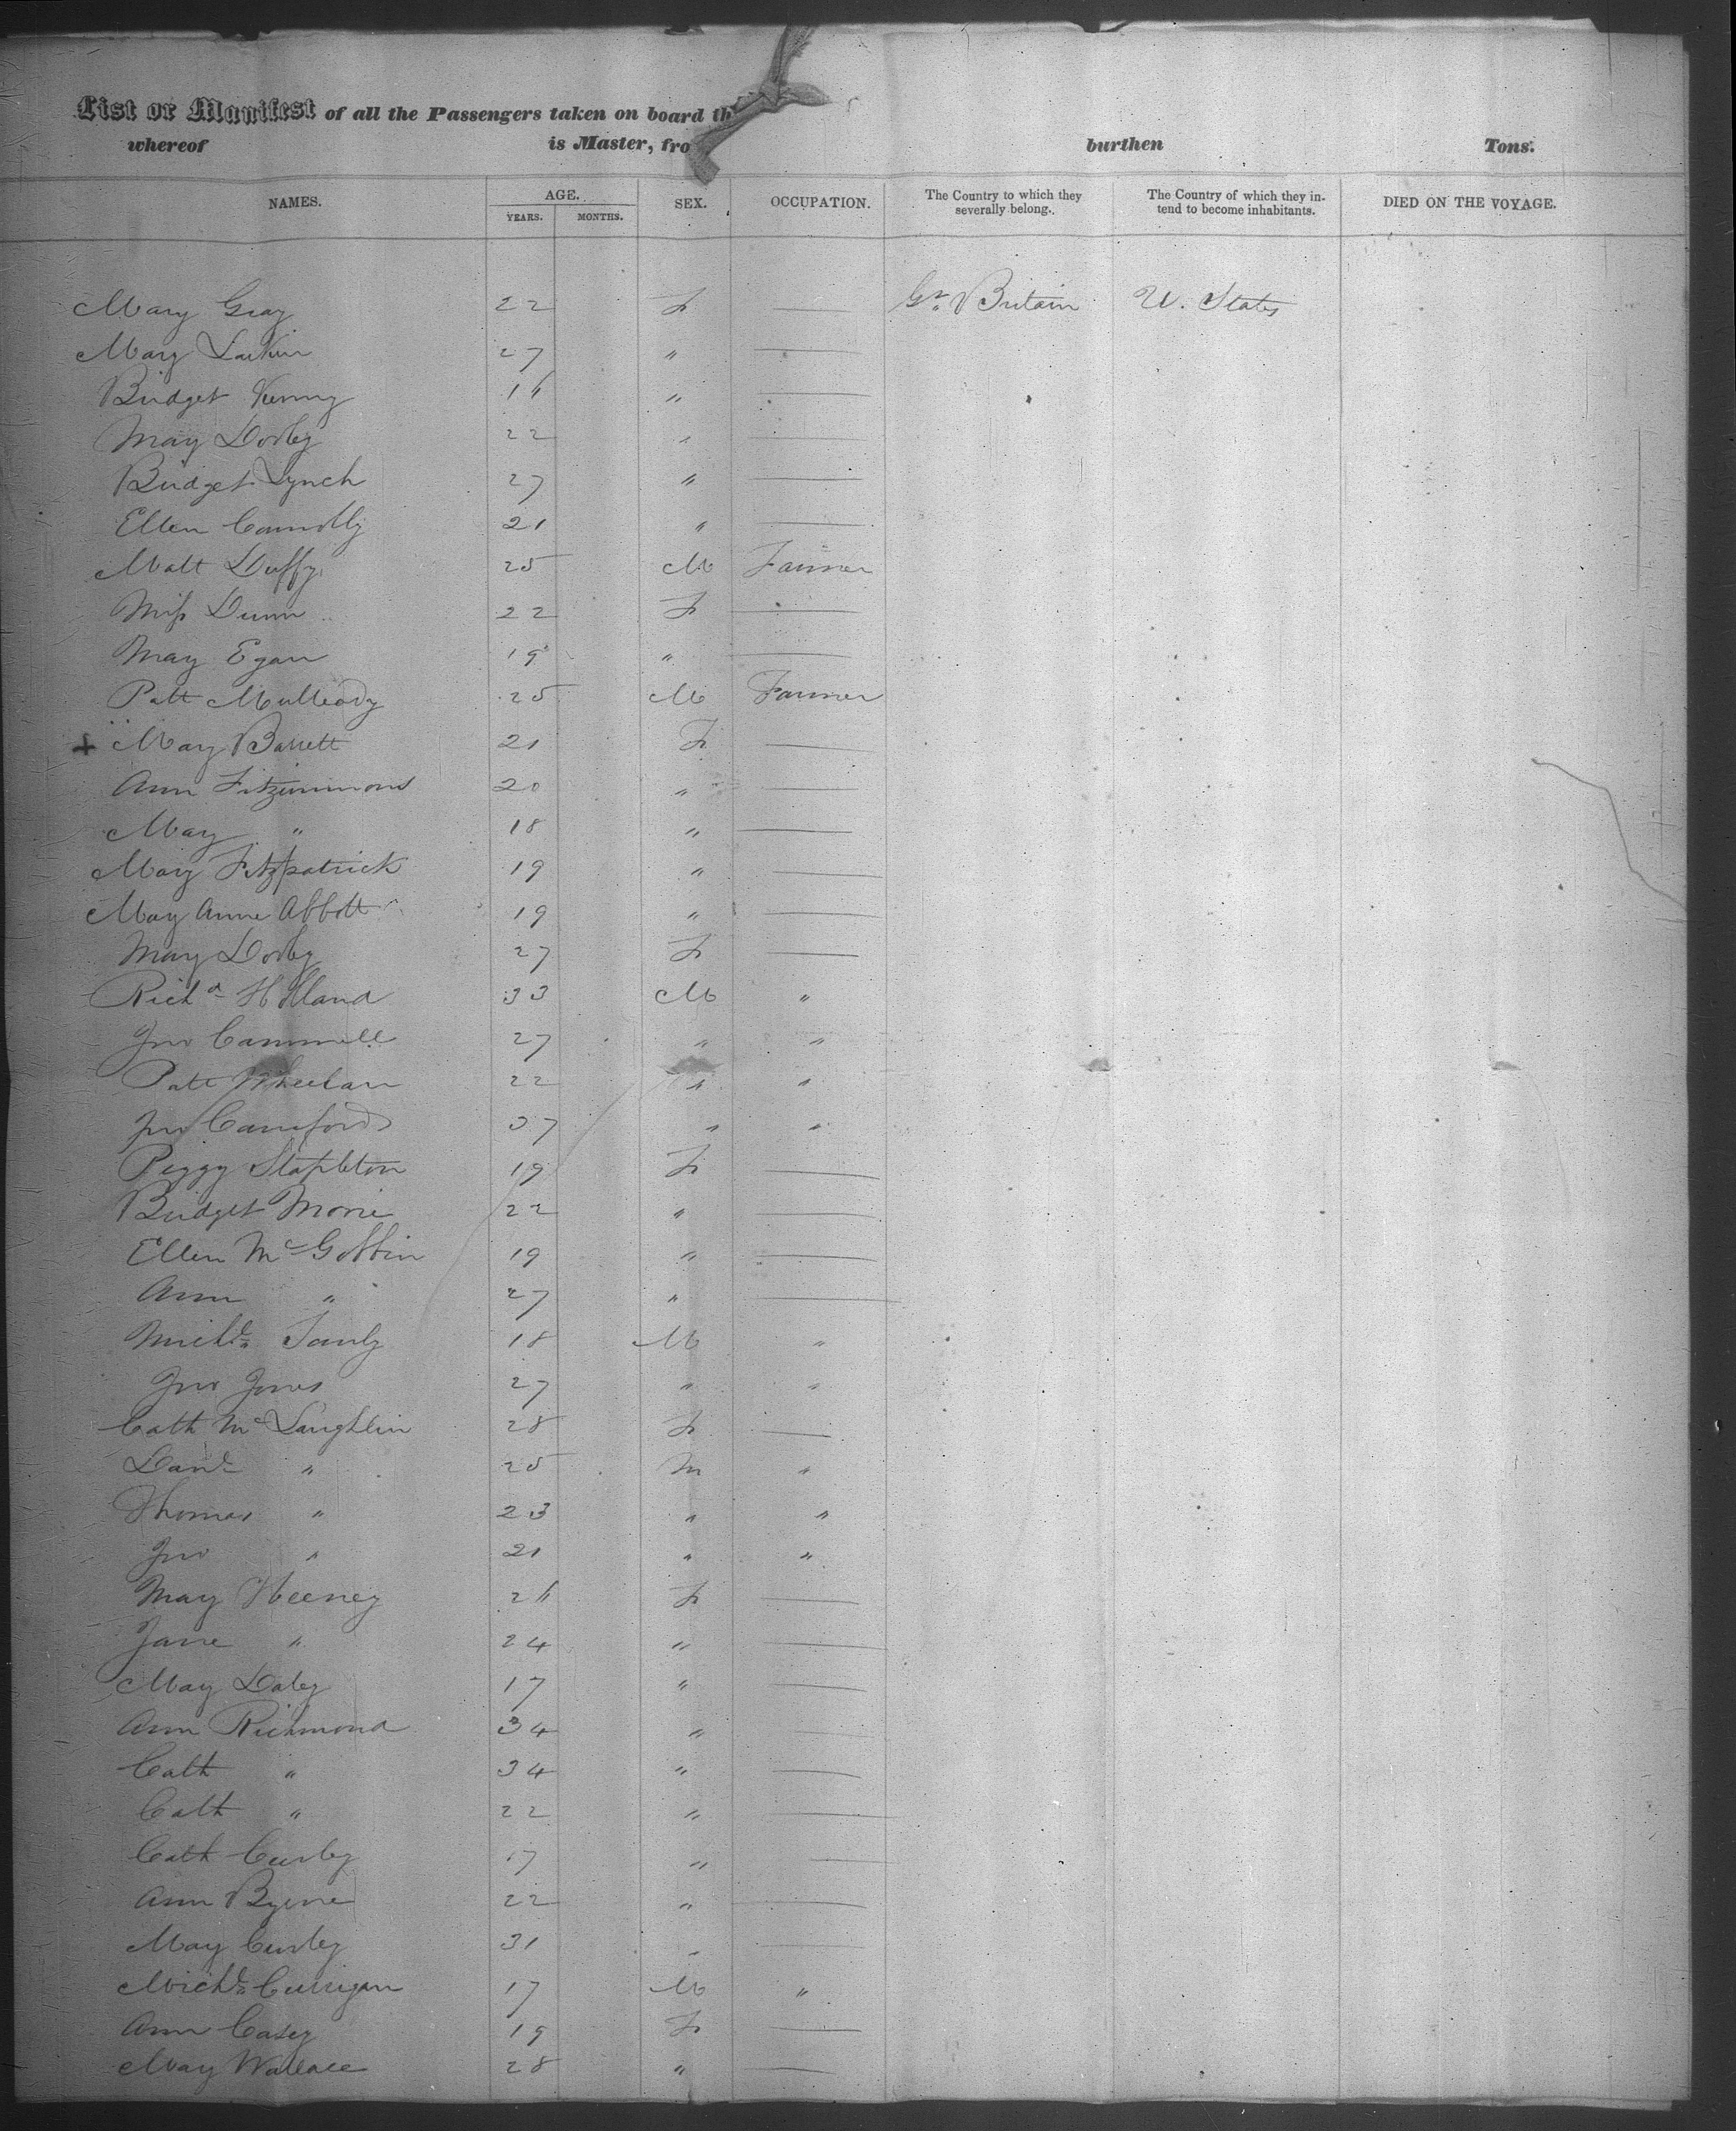 List or Manifest of all the Passengers taken on board th
whereof is Master, fro burthen Tons.
NAMES. AGE. SEX. OCCUPATION. The Country to which they severally belong. The Country of which they intend to become inhabitants. DIED ON THE VOYAGE.
YEARS. MONTHS.
Mary Gray 22 F — Gt. Britain U. States
Mary Larkin 27 " —
Bridget Kenny 16 " —
Mary 22 " —
Bridget Lynch 27 " —
Ellen Connolly 21 " —
Matt Duffy 25 M Farmer
Miss Dunn 22 F —
Mary Egan 19 " —
Patt Mulleady 25 M Farmer
+ Mary Barrett 21 F —
Ann Fitzsimmons 20 " —
Mary " 18 " —
Mary Fitzpatrick 19 " —
Mary Anne Abbott 19 " —
Mary 27 F —
Richd Holland 33 M "
Jno Cammell 27 " "
Patt Wheelan 22 " "
Jno 37 " "
Peggy Stapleton 19 F —
Bridget 22 " —
Ellen McGobbin 19 " —
Ann " 27 " —
Michl. 18 M "
Jno Jones 27 " "
Cath McLaughlin 28 F —
Danl " 25 M "
Thomas " 23 " "
Jno " 21 " "
Mary Heeney 26 F —
Jane " 24 " —
Mary Daly 17 " —
Ann Richmond 34 " —
Cath " 34 " —
Cath " 22 " —
Cath Curley 17 " —
Ann Byrne 22 " —
Mary Curley 31 " —
Michl. Currigan 17 M "
Ann Casey 19 F —
Mary Wallace 28 " —